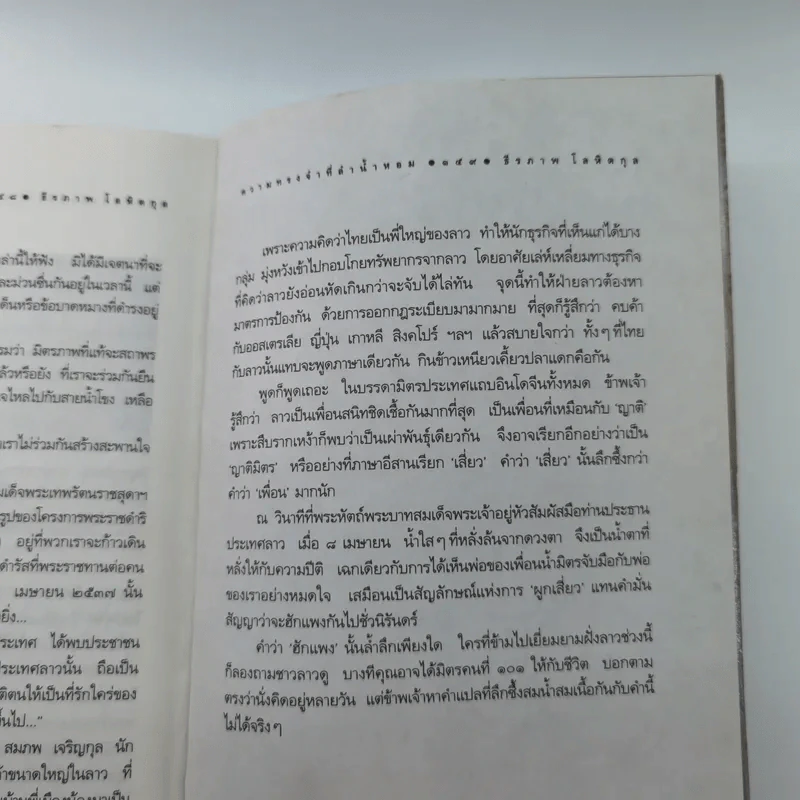 ๔๘๑ ธีรภาพ โลหิตกุล
ล่านี้ให้ฟัง มิได้มีเจตนาที่จะ
ละม่วนชื่นกันอยู่ในเวลานี้ แต่
ด็นหรือข้อบาดหมางที่ดำรงอยู่
รมว่า มิตรภาพที่แท้จะสถาพร
ล้วหรือยัง ที่เราจะร่วมกันยืน
จไหลไปกับสายน้ำโขง เหลือ
เราไม่ร่วมกันสร้างสะพานใจ
มเด็จพระเทพรัตนราชสุดาฯ
รูปของโครงการพระราชดำริ
อยู่ที่พวกเราจะก้าวเดิน
ดำรัสที่พระราชทานต่อคน
เมษายน ๒๕๓๗ นั้น
ยิ่ง...
ระเทศ ได้พบประชาชน
ประเทศลาวนั้น ถือเป็น
ติตนให้เป็นที่รักใคร่ของ
ขึ้นไป..."
สมภพ เจริญกุล นัก
้าขนาดใหญ่ในลาว ที่
ความทรงจำที่ลำน้ำหอม ๑๔๙๑ ธีรภาพ โลหิตกุล
เพราะความคิดว่าไทยเป็นพี่ใหญ่ของลาว ทำให้นักธุรกิจที่เห็นแก่ได้บาง
กลุ่ม มุ่งหวังเข้าไปกอบโกยทรัพยากรจากลาว โดยอาศัยเล่ห์เหลี่ยมทางธุรกิจ
ที่คิดว่าลาวยังอ่อนหัดเกินกว่าจะจับได้ไล่ทัน จุดนี้ทำให้ฝ่ายลาวต้องหา
มาตรการป้องกัน ด้วยการออกกฎระเบียบมามากมาย ที่สุดก็รู้สึกว่า คบค้า
กับออสเตรเลีย ญี่ปุ่น เกาหลี สิงคโปร์ ฯลฯ แล้วสบายใจกว่า ทั้งๆ ที่ไทย
กับลาวนั้นแทบจะพูดภาษาเดียวกัน กินข้าวเหนียวเคี้ยวปลาแดกคือกัน
พูดก็พูดเถอะ ในบรรดามิตรประเทศแถบอินโดจีนทั้งหมด ข้าพเจ้า
รู้สึกว่า ลาวเป็นเพื่อนสนิทชิดเชื้อกันมากที่สุด เป็นเพื่อนที่เหมือนกับ 'ญาติ'
เพราะสืบรากเหง้าก็พบว่าเป็นเผ่าพันธุ์เดียวกัน จึงอาจเรียกอีกอย่างว่าเป็น
'ญาติมิตร' หรืออย่างที่ภาษาอีสานเรียก 'เสี่ยว' คำว่า 'เสี่ยว' นั้นลึกซึ้งกว่า
คำว่า 'เพื่อน' มากนัก
ณ วินาทีที่พระหัตถ์พระบาทสมเด็จพระเจ้าอยู่หัวสัมผัสมือท่านประธาน
ประเทศลาว เมื่อ ๘ เมษายน น้ำใสๆ ที่หลั่งล้นจากดวงตา จึงเป็นน้ำตาที่
หลั่งให้กับความปีติ เฉกเดียวกับการได้เห็นพ่อของเพื่อนน้ำมิตรจับมือกับพ่อ
ของเราอย่างหมดใจ เสมือนเป็นสัญลักษณ์แห่งการ 'ผูกเสี่ยว' แทนคำมั่น
สัญญาว่าจะฮักแพงกันไปชั่วนิรันดร์
คำว่า 'ฮักแพง' นั้นล้ำลึกเพียงใด ใครที่ข้ามไปเยี่ยมยามฝั่งลาวช่วงนี้
ก็ลองถามชาวลาวดู บางทีคุณอาจได้มิตรคนที่ ๑๐๑ ให้กับชีวิต บอกตาม
ตรงว่านั่งคิดอยู่หลายวัน แต่ข้าพเจ้าหาคำแปลที่ลึกซึ้งสมน้ำสมเนื้อกันกับคำนี้
ไม่ได้จริงๆ